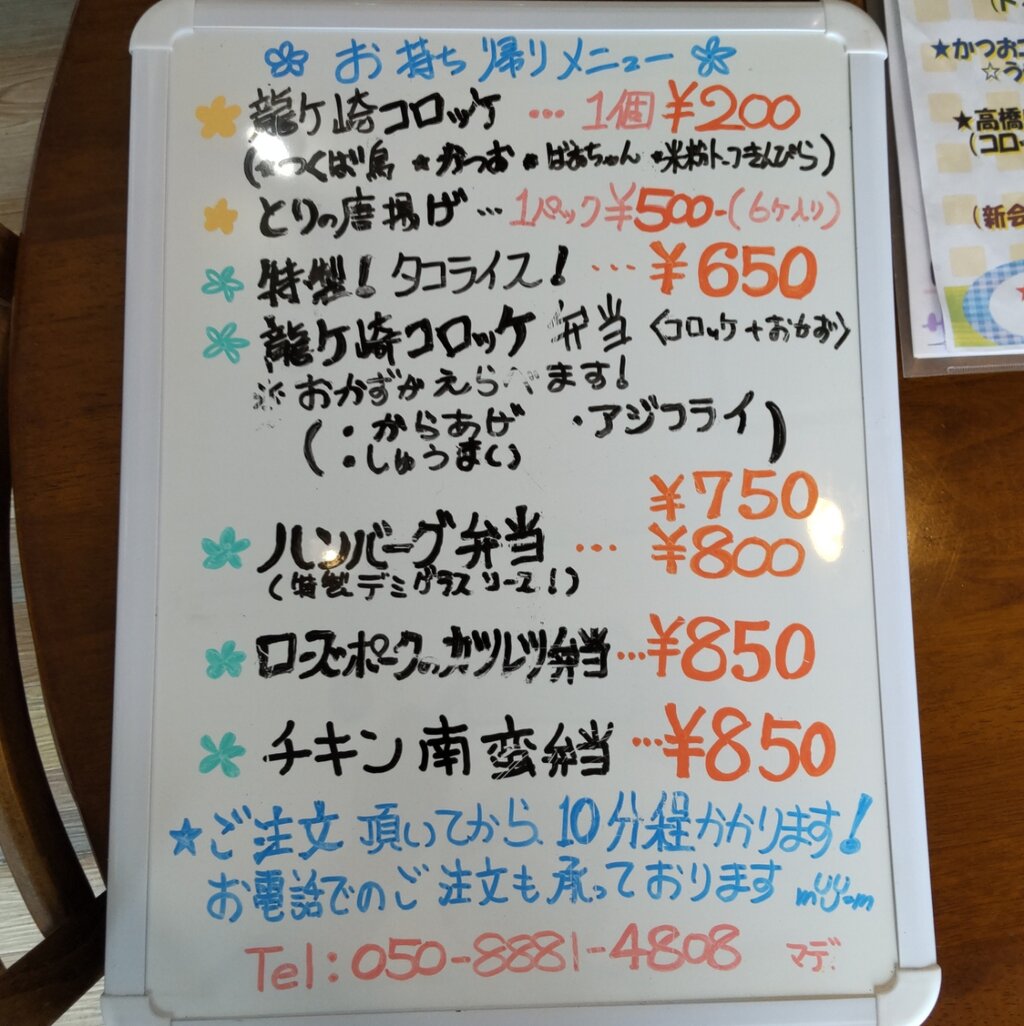 お持ち帰りメニュー
龍ケ崎コロッケ … 1個 ¥200
(★つくば鳥 ★かつお ★ばあちゃん ★米粉トーフきんぴら)
とりの唐揚げ … 1パック ¥500-(6ケ入り)
特製! タコライス! … ¥650
龍ケ崎コロッケ 弁当 〈コロッケ+おかず〉
※おかずがえらべます!
(・からあげ ・アジフライ)
・しゅうまい
¥750
ハンバーグ弁当 … ¥800
(特製デミグラスソース!)
ローズポークのカツレツ弁当…¥850
チキン南蛮弁当 …¥850
★ご注文頂いてから、10分程かかります!
お電話でのご注文も承っております
Tel:050-8881-4808 マデ
★かつお
★高橋
(コロ
(新会